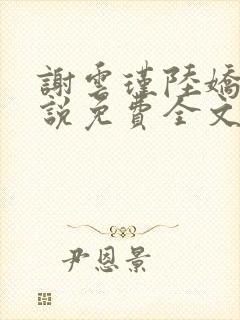 謝雲瑾陸嬌
說免費全文
尹恩景